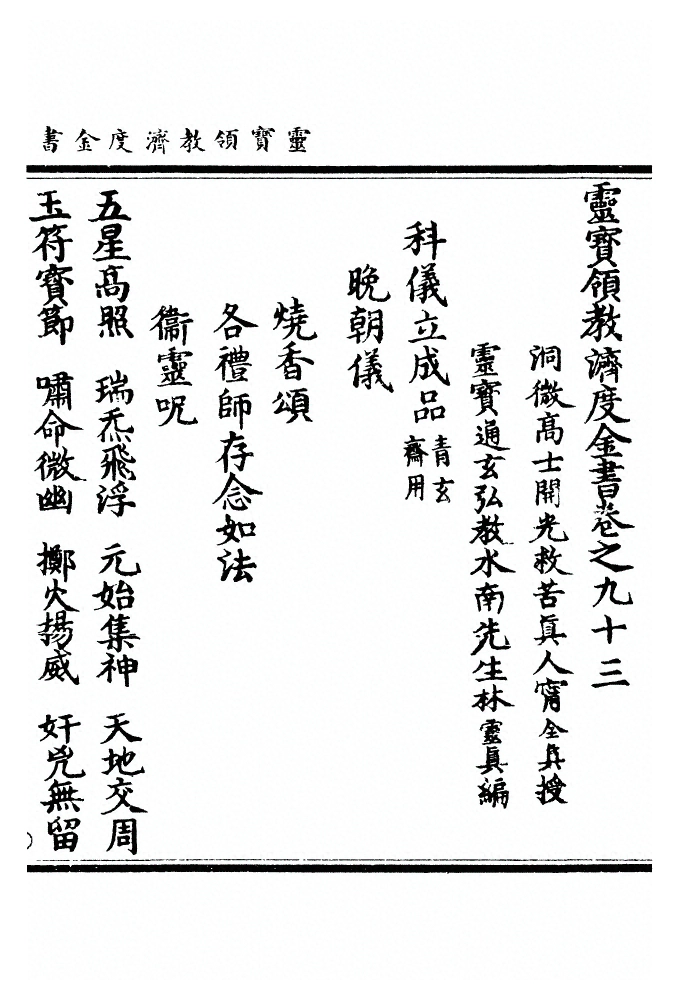 靈寳領教濟度金書
靈寳領教濟度金書卷之九十三
洞微高士開光救苦真人甯全真授
靈寳通玄弘教水南先生林靈真編
科儀立成品青玄齋用
晚朝儀
燒香頌
各禮師存念如法
衞靈呪
五星高照 瑞炁飛浮 元始集神 天地交周
玉符寳節 嘯命微幽 擲火揚威 奸兇無留